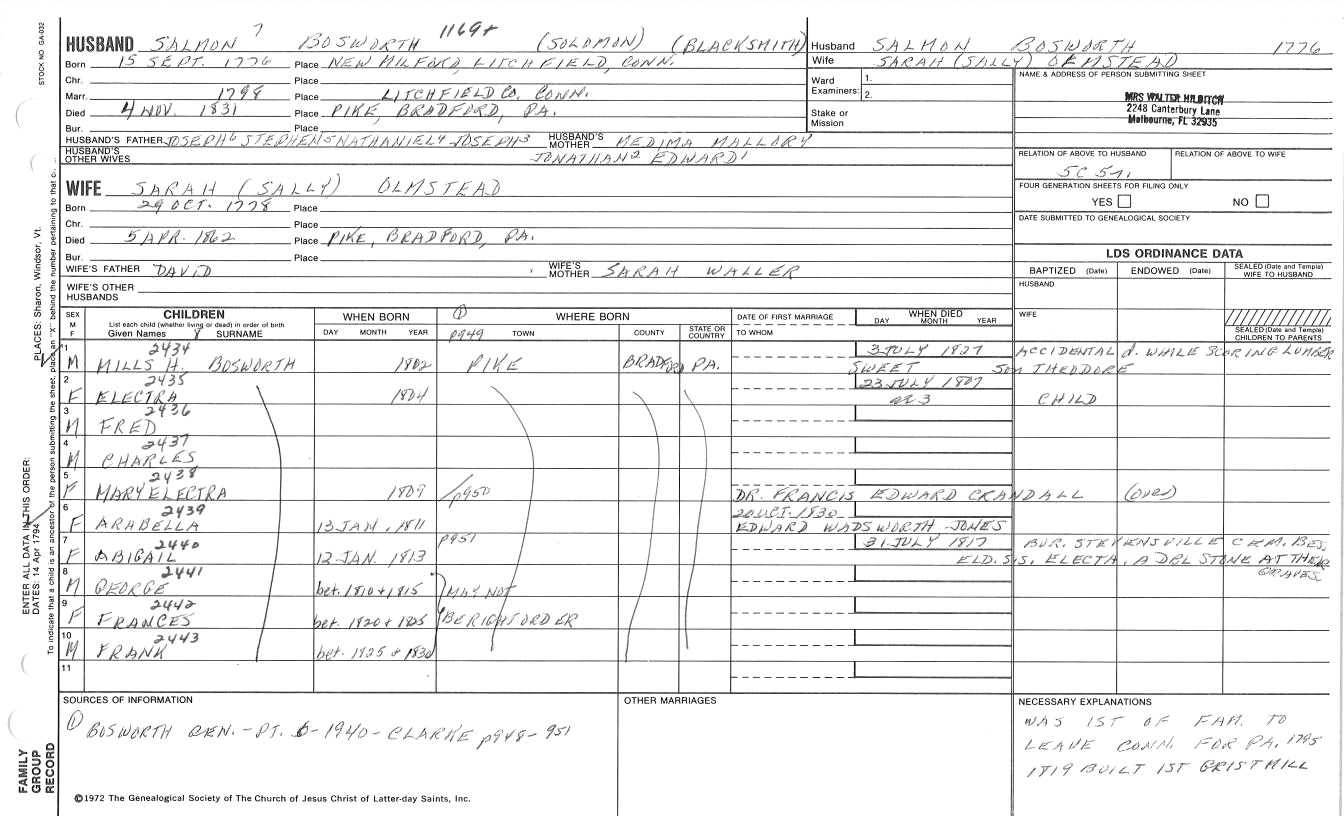 STOCK NO. GA-032
HUSBAND SALMON 7 BOSWORTH 1169+ (SOLOMON) (BLACKSMITH)
Born 15 SEPT. 1776 Place NEW MILFORD, LITCHFIELD, CONN.
Chr. Place
Marr. 1798 Place LITCHFIELD CO. CONN.
Died 4 NOV. 1831 Place PIKE, BRADFORD, PA.
Bur. Place
HUSBAND'S FATHER JOSEPH6 STEPHEN5 NATHANIEL4 JOSEPH3 HUSBAND'S MOTHER MEDIMA MALLORY
HUSBAND'S OTHER WIVES JONATHAN2 EDWARD1
Husband SALMON BOSWORTH 1776
Wife SARAH (SALLY) OLMSTEAD
Ward 1.
Examiners: 2.
Stake or Mission
NAME & ADDRESS OF PERSON SUBMITTING SHEET
MRS WALTER HILBITCH
2248 Canterbury Lane
Melbourne, FL 32935
RELATION OF ABOVE TO HUSBAND RELATION OF ABOVE TO WIFE
5C 5r.
FOUR GENERATION SHEETS FOR FILING ONLY
YES NO
DATE SUBMITTED TO GENEALOGICAL SOCIETY
WIFE SARAH (SALLY) OLMSTEAD
Born 29 OCT. 1778 Place
Chr. Place
Died 5 APR. 1862 Place PIKE, BRADFORD, PA.
Bur. Place
WIFE'S FATHER DAVID WIFE'S MOTHER SARAH WALLER
WIFE'S OTHER HUSBANDS
LDS ORDINANCE DATA
BAPTIZED (Date) ENDOWED (Date) SEALED (Date and Temple) WIFE TO HUSBAND
HUSBAND
WIFE
SEALED (Date and Temple) CHILDREN TO PARENTS
SEX M F
CHILDREN
List each child (whether living or dead) in order of birth
Given Names 8 SURNAME
WHEN BORN
DAY MONTH YEAR
① WHERE BORN
p949 TOWN COUNTY STATE OR COUNTRY
DATE OF FIRST MARRIAGE
TO WHOM
WHEN DIED
DAY MONTH YEAR
1 2434 3 JULY 1827 ACCIDENTAL d. WHILE SCORING LUMBER
M MILLS H. BOSWORTH 1802 PIKE BRADFORD PA. SWEET SON THEODORE
2 2435 23 JULY 1807
F ELECTRA 1804 ae 3 CHILD
3 2436
M FRED
4 2437
M CHARLES
5 2438
F MARY ELECTRA 1809 p950 DR. FRANCIS EDWARD CRANDALL (over)
6 2439 20 OCT. 1830
F ARABELLA 13 JAN. 1811 EDWARD WADSWORTH JONES
7 2440 p951 31 JULY 1817 BUR. STEVENSVILLE CEM. BES.
F ABIGAIL 12 JAN. 1813 ELD. SIS. ELECTA. A DBL STONE AT THEIR GRAVES
8 2441
M GEORGE bet. 1810 + 1815 MAY NOT
9 2442
F FRANCES bet. 1820 + 1825 BE RIGHT ORDER
10 2443
M FRANK bet. 1825 + 1830
11
SOURCES OF INFORMATION
① BOSWORTH GEN. - PT. 6 - 1940 - CLARKE p948 - 951
OTHER MARRIAGES
NECESSARY EXPLANATIONS
WAS 1ST OF FAM. TO
LEAVE CONN. FOR PA. 1795
1819 BUILT 1ST GRISTMILL
©1972 The Genealogical Society of The Church of Jesus Christ of Latter-day Saints, Inc.
FAMILY
GROUP
RECORD
ENTER ALL DATA IN THIS ORDER:
DATES: 14 Apr 1794
PLACES: Sharon, Windsor, Vt.
To indicate that a child is an ancestor of the person submitting the sheet, place an "X" behind the number pertaining to that c.